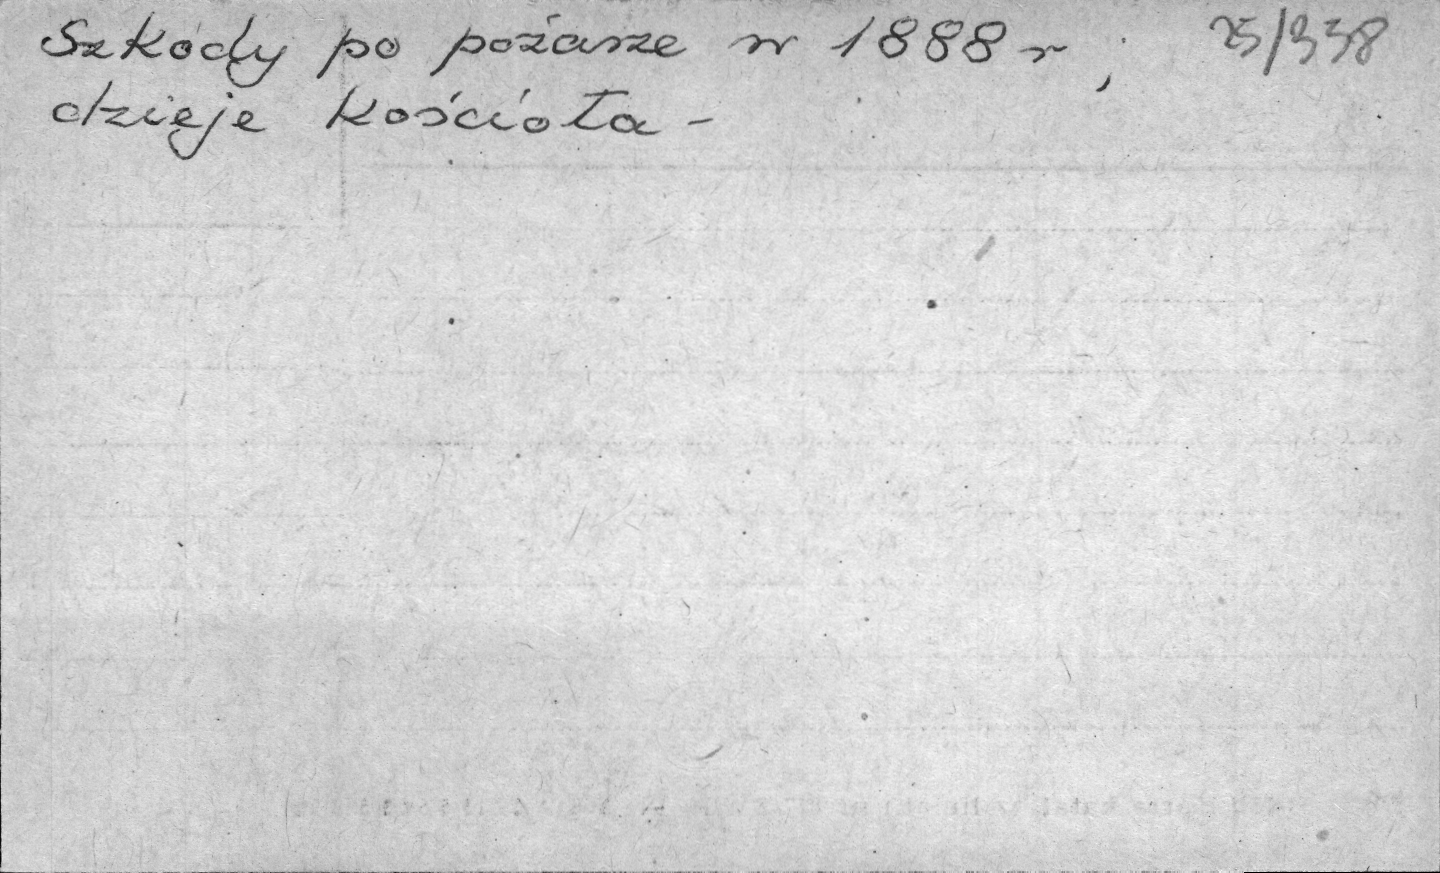 Szkody po pożarze w 1888 r ; 25/938
dzieje kościoła -